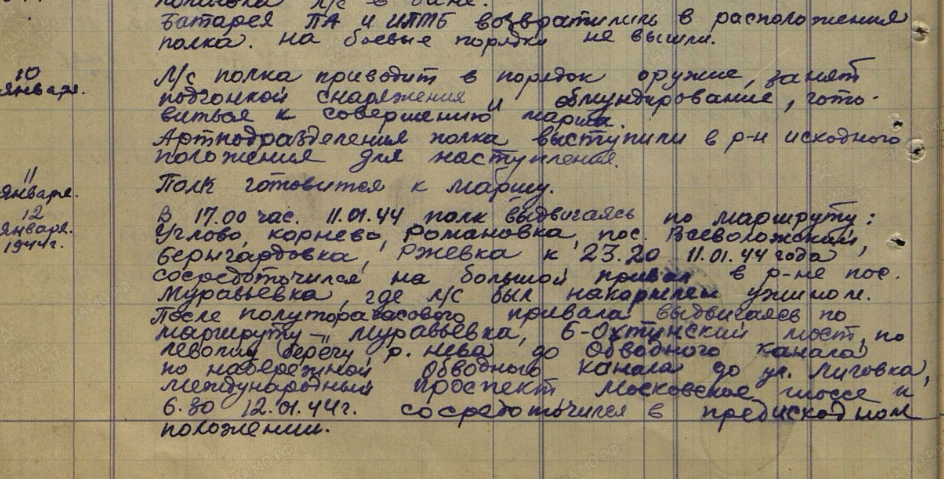 л/с в бане.
Батарея ПА и ИПТБ возвратились в расположения
полка. На боевые порядки не вышли.
10
января.
Л/с полка приводит в порядок оружие, занят
подгонкой снаряжения и обмундирование, гото-
виться к совершению марша.
Артподразделения полка выступили в р-н исходного
положения для наступления.
11
января.
Полк готовится к маршу.
12
января.
1944г.
В 17.00 час. 11.01.44 полк выдвигаясь по маршруту:
Углово, корнево, Романовка, пос. Всеволожский,
бернгардовка, Ржевка к 23.20 11.01.44 года
сосредоточился на большой привал в р-не пос.
Муравьевка, где л/с был накормлен ужином.
После полуторачасового привала выдвигаясь по
маршруту – Муравьевка, Б-Охтинский мост, по
левому берегу р. Нева до Обводного канала,
по набережной Обводного канала до ул. Лиговка,
международный проспект Московское шоссе к
6.30 12.01.44г. сосредоточился в предисходном
положении.